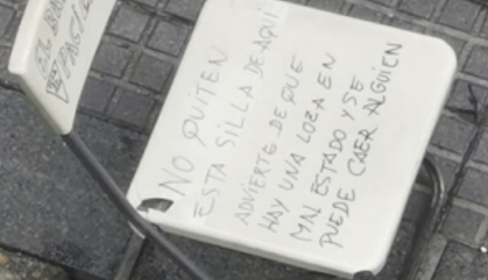 EL BAR
NO QUITEN
ESTA SILLA DE AQUÍ
ADVIERTE DE QUE
HAY UNA LOZA EN
MAL ESTADO Y SE
PUEDE CAER ALGUIEN